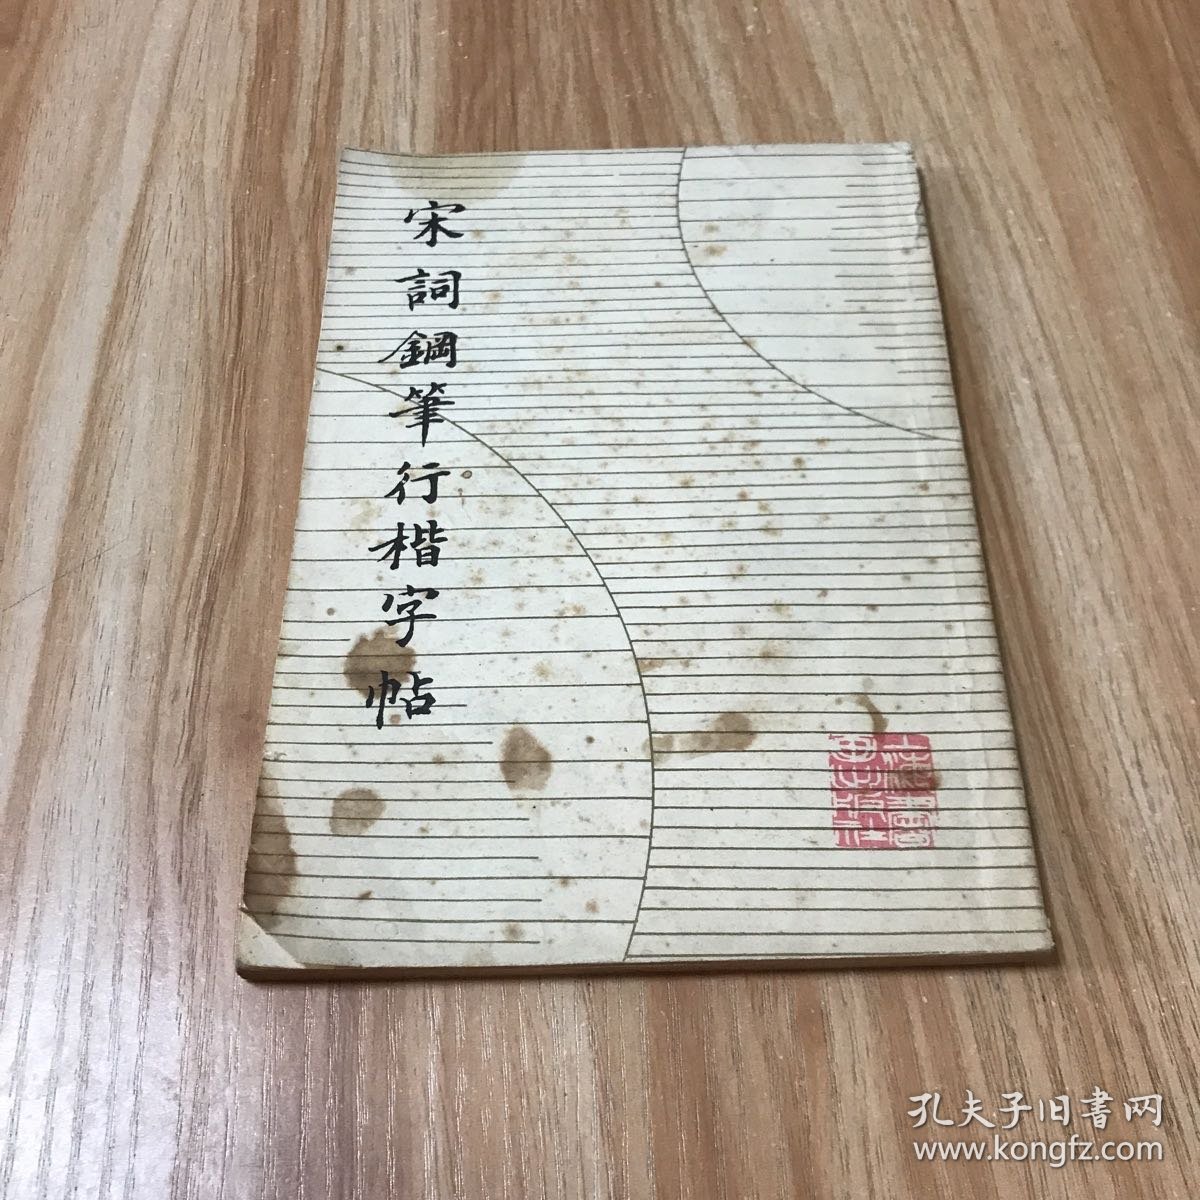 宋詞鋼筆行楷字帖
孔夫子旧書网
www.kongfz.com